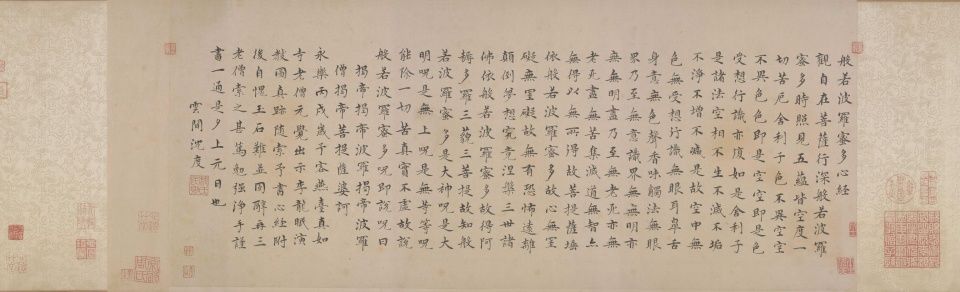 般若波羅蜜多心經
觀自在菩薩行深般若波羅
蜜多時照見五蘊皆空度一
切苦厄舍利子色不異空空
不異色色即是空空即是色
受想行識亦復如是舍利子
是諸法空相不生不滅不垢
不淨不增不減是故空中無
色無受想行識無眼耳鼻舌
身意無色聲香味觸法無眼
界乃至無意識界無無明亦
無無明盡乃至無老死亦無
老死盡無苦集滅道無智亦
無得以無所得故菩提薩埵
依般若波羅蜜多故心無罣
礙無罣礙故無有恐怖遠離
顛倒夢想究竟涅槃三世諸
佛依般若波羅蜜多故得阿
耨多羅三藐三菩提故知般
若波羅蜜多是大神呪是大
明呪是無上呪是無等等呪
能除一切苦真實不虛故說
般若波羅蜜多呪即說呪曰
揭帝揭帝波羅揭帝波羅
僧揭帝菩提薩婆訶
永樂丙戌歲予客燕臺真如
寺老僧元覺出示李龍眠演
教圖真跡隨索予書心經附
後自愧玉石難並固辭再三
老僧索之甚篤勉強淨手謹
書一通是夕上元日也
雲間沈度